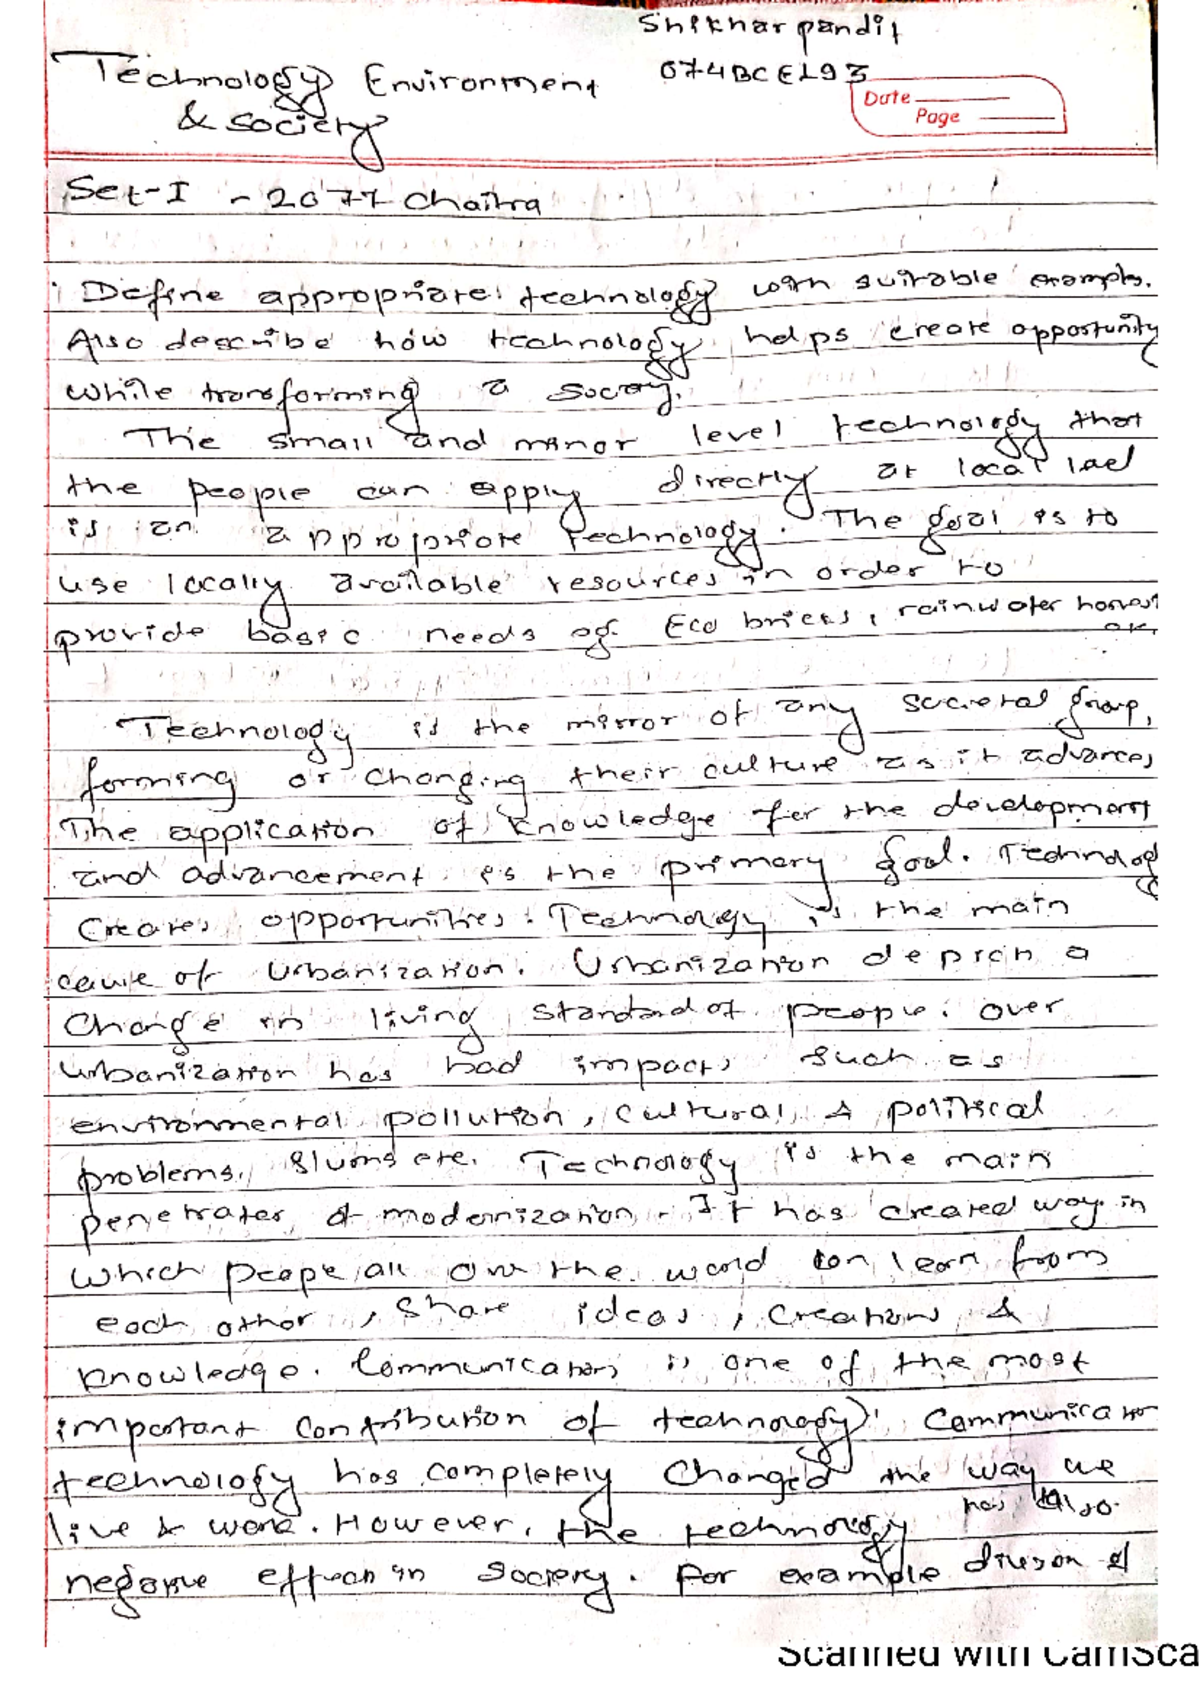 Shikhar pandit
Technology Environment
074BCE193
& society
Date
Page
Set-I - 2077 Chaitra
Define appropriate technology with suitable examples.
Also describe how technology helps create opportunity
while transforming a society.
The small and minor level technology that
the people can apply directly at local level
is an appropriate technology. The goal is to
use locally available resources in order to
provide basic needs eg. Eco bricks, rainwater harvest
Technology is the mirror of any societal group,
forming or changing their culture as it advances
The application of knowledge for the development
and advancement is the primary goal. Technology
creates opportunities. Technology is the main
cause of urbanization. Urbanization depicts a
change in living standard of people. Over
urbanization has bad impacts such as
environmental pollution, cultural & political
problems, slums etc. Technology is the main
penetrater of modernization. It has created ways in
which people all over the world can learn from
each other, share ideas, creations &
knowledge. Communication is one of the most
important contribution of technology. Communication
technology has completely changed the way we
live & work. However, the technology has also
negative effect in society. For example division of
Scanned with CamSca